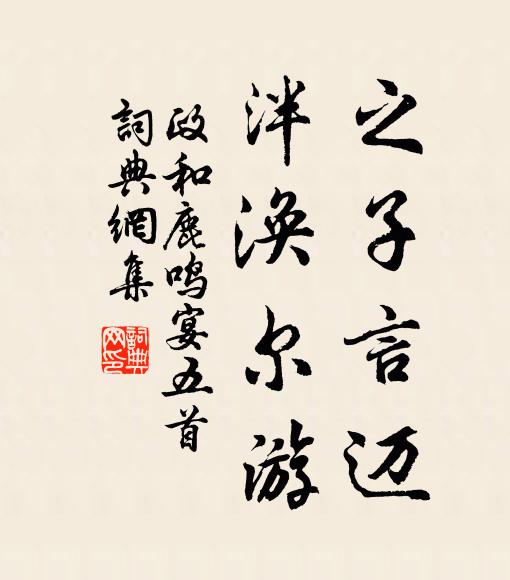 之子言迈
泮涣尔游
政和鹿鸣宴五首
詞典網集
詞典
网印